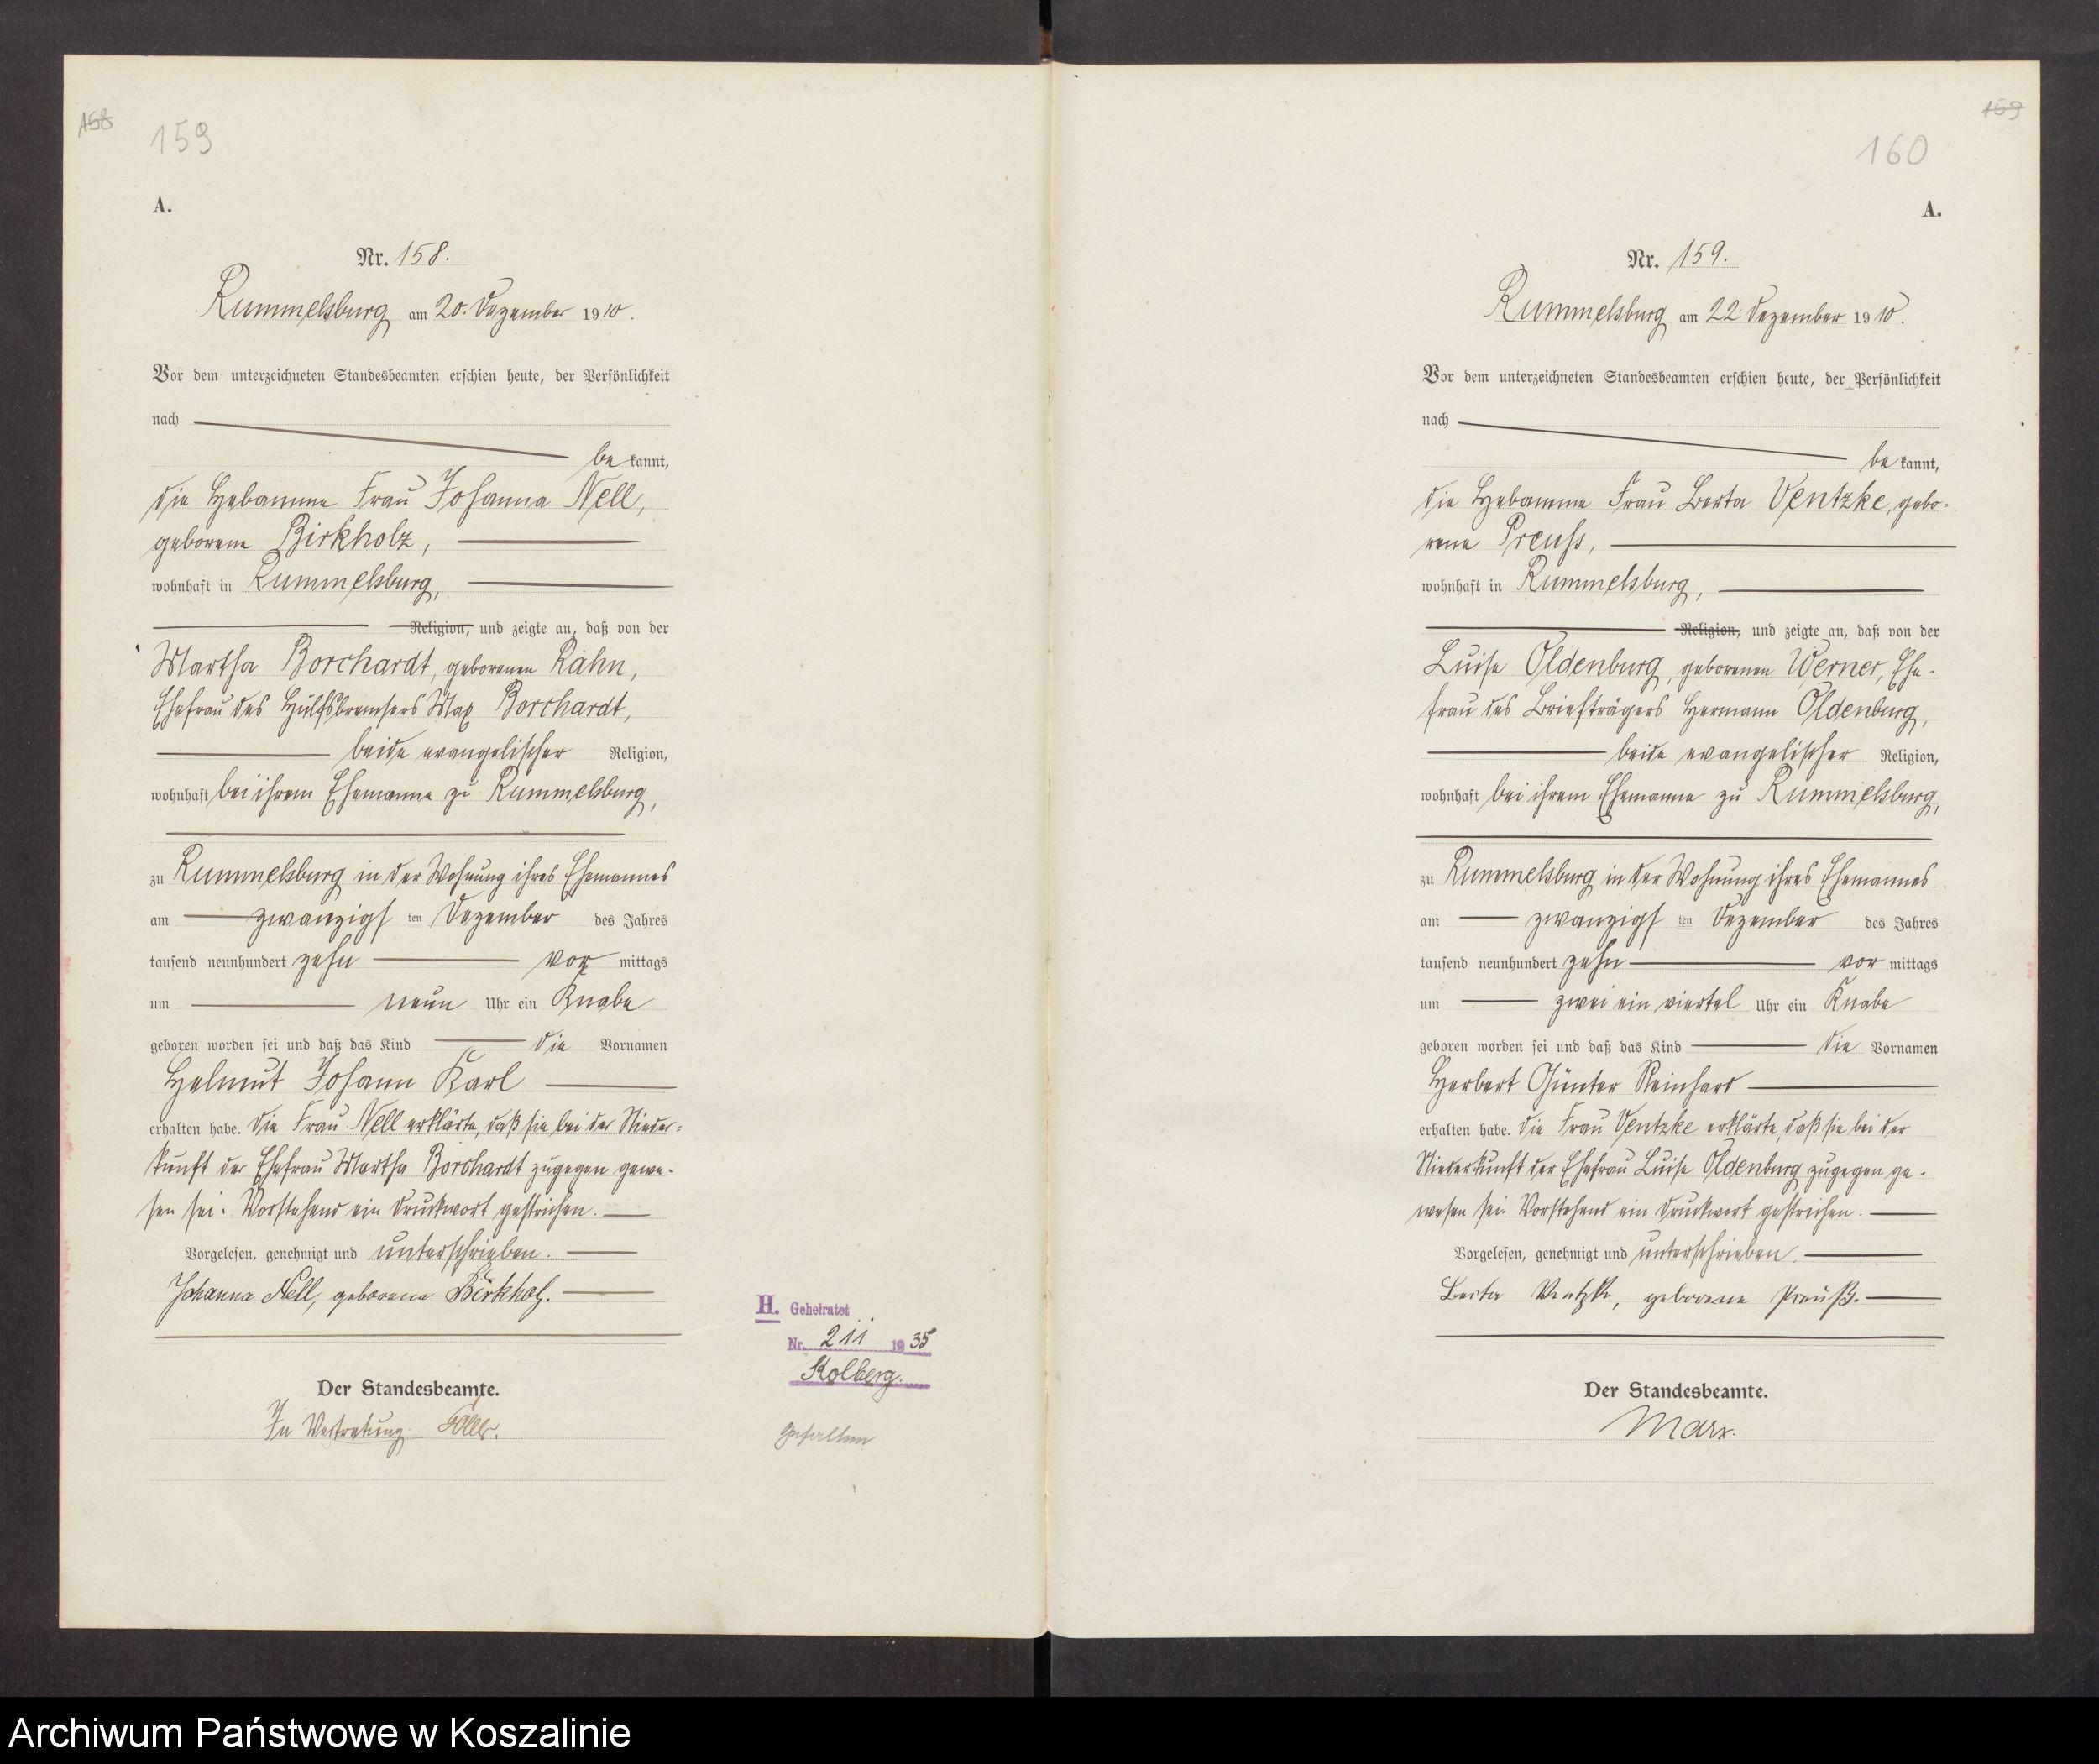 158
159
A.
Nr. 158.
Rummelsburg am 20. Dezember 1910.
Vor dem unterzeichneten Standesbeamten erschien heute, der Persönlichkeit
nach
bekannt,
die Hebamme Frau Johanna Nell,
geborene Birkholz,
wohnhaft in Rummelsburg,
Religion, und zeigte an, daß von der
Martha Borchardt, geborenen Rahn,
Ehefrau des Hülfsbremsers Max Borchardt,
beide evangelischer Religion,
wohnhaft bei ihrem Ehemanne zu Rummelsburg,
zu Rummelsburg in der Wohnung ihres Ehemannes
am zwanzigsten Dezember des Jahres
tausend neunhundert zehn vormittags
um neun Uhr ein Knabe
geboren worden sei und daß das Kind die Vornamen
Helmut Johann Karl
erhalten habe. Die Frau Nell erklärte, daß sie bei der Nieder-
kunft der Ehefrau Martha Borchardt zugegen gewe-
sen sei. Vorstehend ein Druckwort gestrichen.
Vorgelesen, genehmigt und unterschrieben.
Johanna Nell, geborene Birkholz.
Der Standesbeamte.
In Vertretung
H. Geheiratet
Nr. 211 1935
Kolberg.
Gefallen
159
160
A.
Nr. 159.
Rummelsburg am 22. Dezember 1910.
Vor dem unterzeichneten Standesbeamten erschien heute, der Persönlichkeit
nach
bekannt,
die Hebamme Frau Berta Ventzke, gebo-
rene Preuss,
wohnhaft in Rummelsburg,
Religion, und zeigte an, daß von der
Luise Oldenburg, geborenen Werner, Ehe-
frau des Briefträgers Hermann Oldenburg,
beide evangelischer Religion,
wohnhaft bei ihrem Ehemanne zu Rummelsburg,
zu Rummelsburg in der Wohnung ihres Ehemannes
am zwanzigsten Dezember des Jahres
tausend neunhundert zehn vormittags
um zwei ein viertel Uhr ein Knabe
geboren worden sei und daß das Kind die Vornamen
Herbert Günter Reinhard
erhalten habe. Die Frau Ventzke erklärte, daß sie bei der
Niederkunft der Ehefrau Luise Oldenburg zugegen ge-
wesen sei. Vorstehend ein Druckwort gestrichen.
Vorgelesen, genehmigt und unterschrieben.
Berta Ventzke, geborene Preuß.
Der Standesbeamte.
Marx.
Archiwum Państwowe w Koszalinie